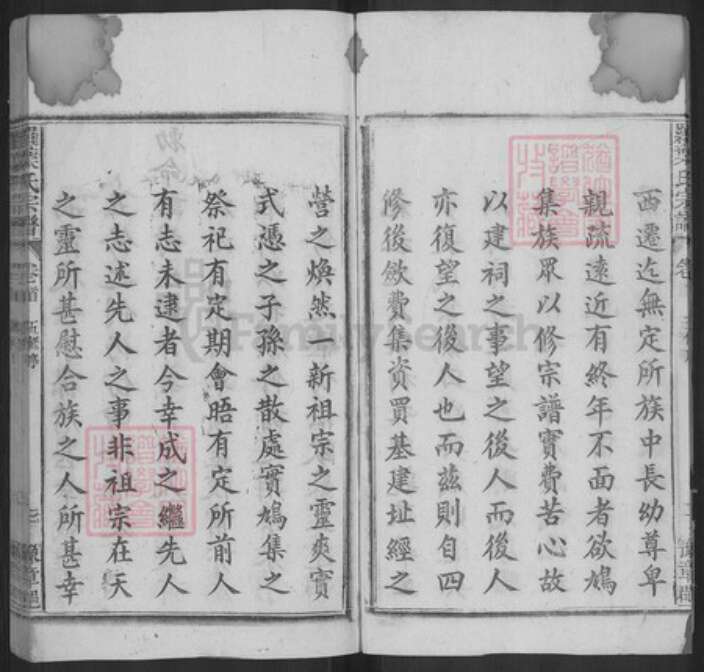 西遷迄無定所族中長幼尊卑
親疏遠近有終年不面者欲鳩
集族眾以修宗譜實費苦心故
以建祠之事望之後人而後人
亦復望之後人也而茲則自四
修後斂費集資買基建址經之
營之煥然一新祖宗之靈爽實
式憑之子孫之散處實鳩集之
祭祀有定期會晤有定所前人
有志未逮者今幸成之繼先人
之志述先人之事非祖宗在天
之靈所甚慰合族之人所甚幸
氏宗譜
卷首
豫章郡
FamilySearch